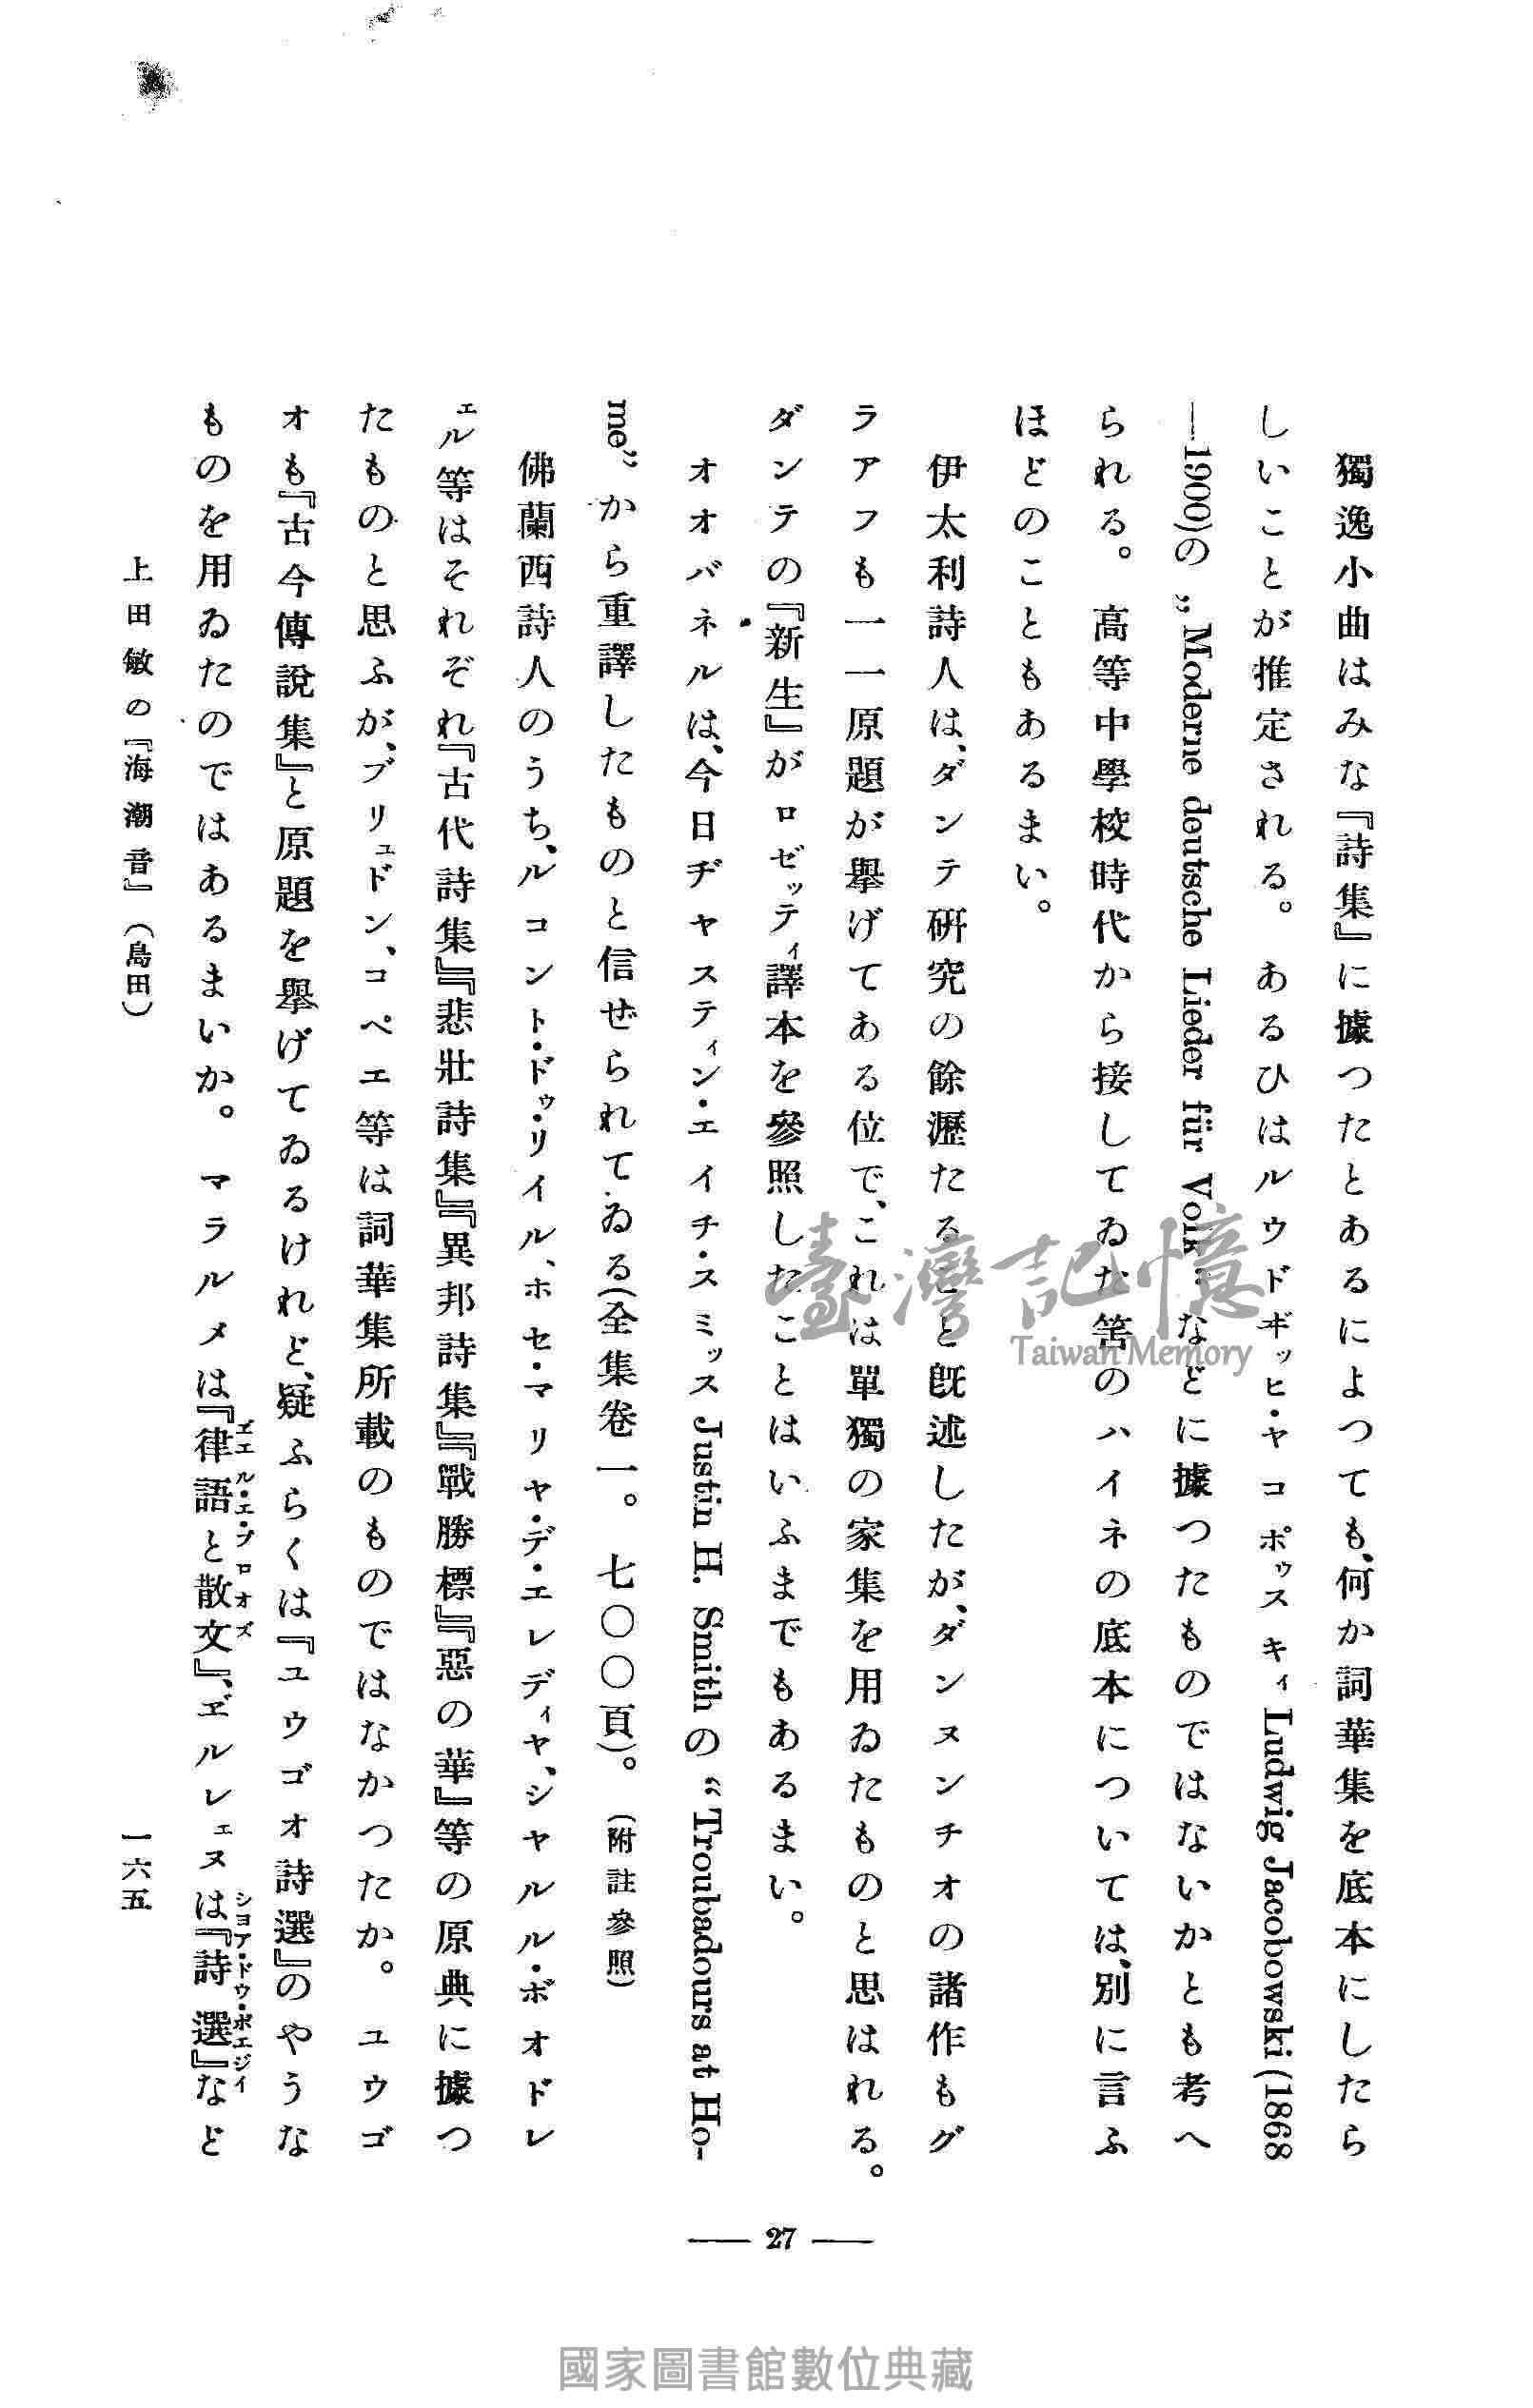 獨逸小曲はみな『詩集』に據つたとあるによつても、何か詞華集を底本にしたら
しいことが推定される。 あるひはルウドヰッヒ・ヤコポゥスキィ Ludwig Jacobowski (1868
—1900)の „Moderne deutsche Lieder für Volk“ などに據つたものではないかとも考へ
られる。 高等中學校時代から接してゐた筈のハイネの底本については、別に言ふ
ほどのこともあるまい。
伊太利詩人は、ダンテ硏究の餘瀝たること既述したが、ダンヌンチオの諸作もグ
ラアフも一一原題が擧げてある位で、これは單獨の家集を用ゐたものと思はれる。
ダンテの『新生』がロゼッティ譯本を參照したことはいふまでもあるまい。
オオバネルは、今日ヂヤスティン・エイチ・スミッス Justin H. Smith の “Troubadours at Ho-
me” から重譯したものと信ぜられてゐる(全集卷一。 七〇〇頁)。 (附註參照)
佛蘭西詩人のうち、ルコント・ドゥ・リイル、ホセ・マリヤ・デ・エレディヤ、シヤルル・ボオドレ
エル等はそれぞれ『古代詩集』『悲壯詩集』『異邦詩集』『戰勝標』『惡の華』等の原典に據つ
たものと思ふが、ブリュドン、コペエ等は詞華集所載のものではなかつたか。 ユウゴ
オも『古今傳說集』と原題を擧げてゐるけれど、疑ふらくは『ユウゴオ詩選』のやうな
ものを用ゐたのではあるまいか。 マラルメは『律語と散文』、ヹルレェヌは『詩選』など
ヹエル・エ・プロオズ
ショア・ドウ・ポエジイ
上田敏の『海潮音』(島田)
一六五
— 27 —
臺灣記憶
Taiwan Memory
國家圖書館數位典藏